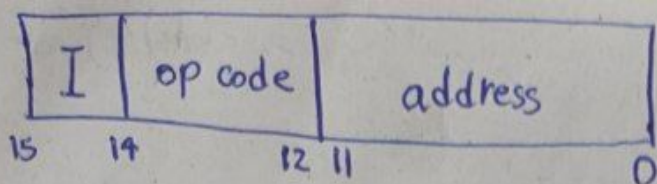 I op code address
15 14 12 11 0